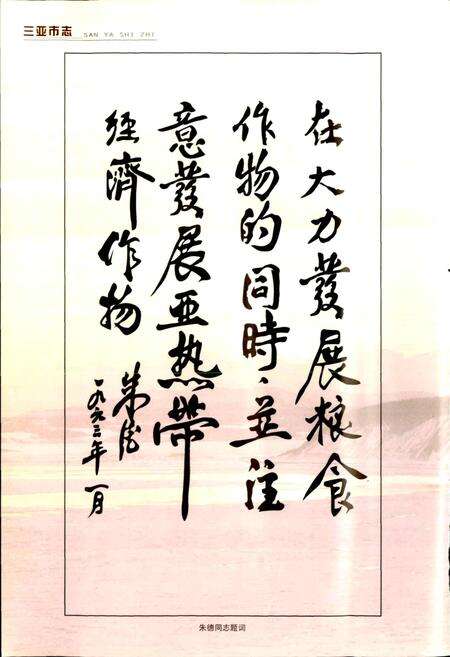 三亚市志 SAN YA SHI ZHI
在大力發展粮食
作物的同時、並注
意發展亚热帶
经濟作物
朱德
一九六三年一月
朱德同志题词